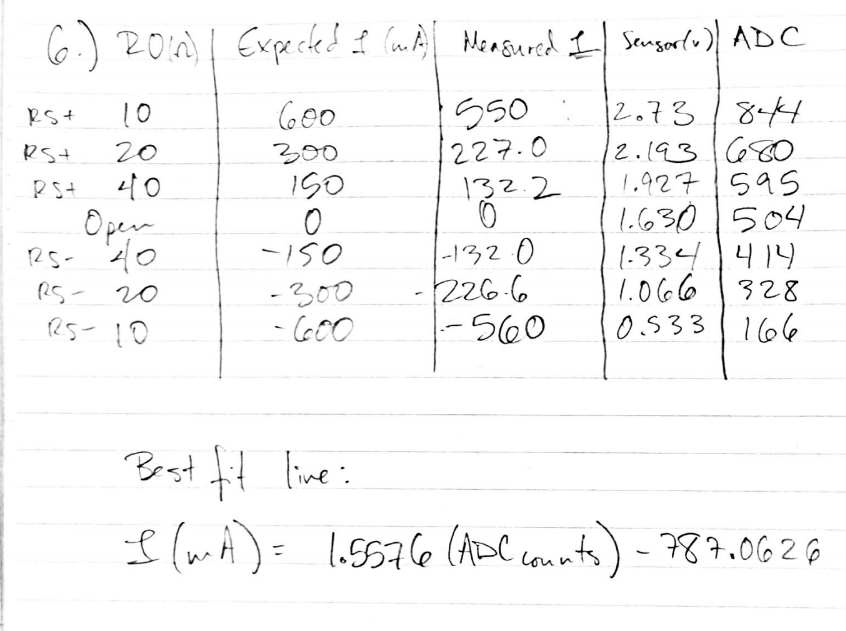 6.) RO(Ω) Expected I (mA) Measured I Sensor(v) ADC
RS+ 10 600 550 2.73 844
RS+ 20 300 227.0 2.193 680
RS+ 40 150 132.2 1.927 595
Open 0 0 1.630 504
RS- 40 -150 -132.0 1.334 414
RS- 20 -300 -226.6 1.066 328
RS- 10 -600 -560 0.533 166
Best fit line:
I (mA) = 1.5576 (ADC counts) - 787.0626